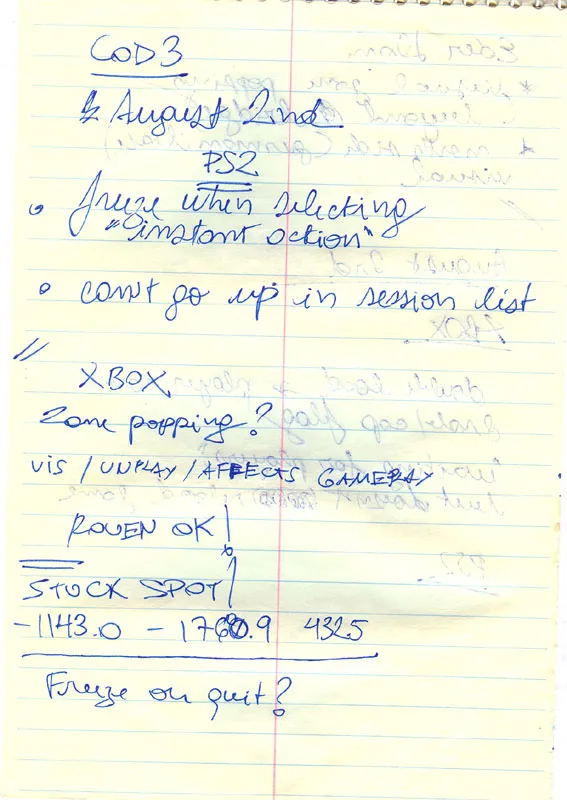 COD3
August 2nd
PS2
• freeze when selecting
"instant action"
• can't go up in session list
//
XBOX
Zone popping?
VIS / UNPLAY / AFFECTS GAMEPLAY
ROUEN OK!
STUCK SPOT!
-1143.0 -1760.9 432.5
Freeze on quit?